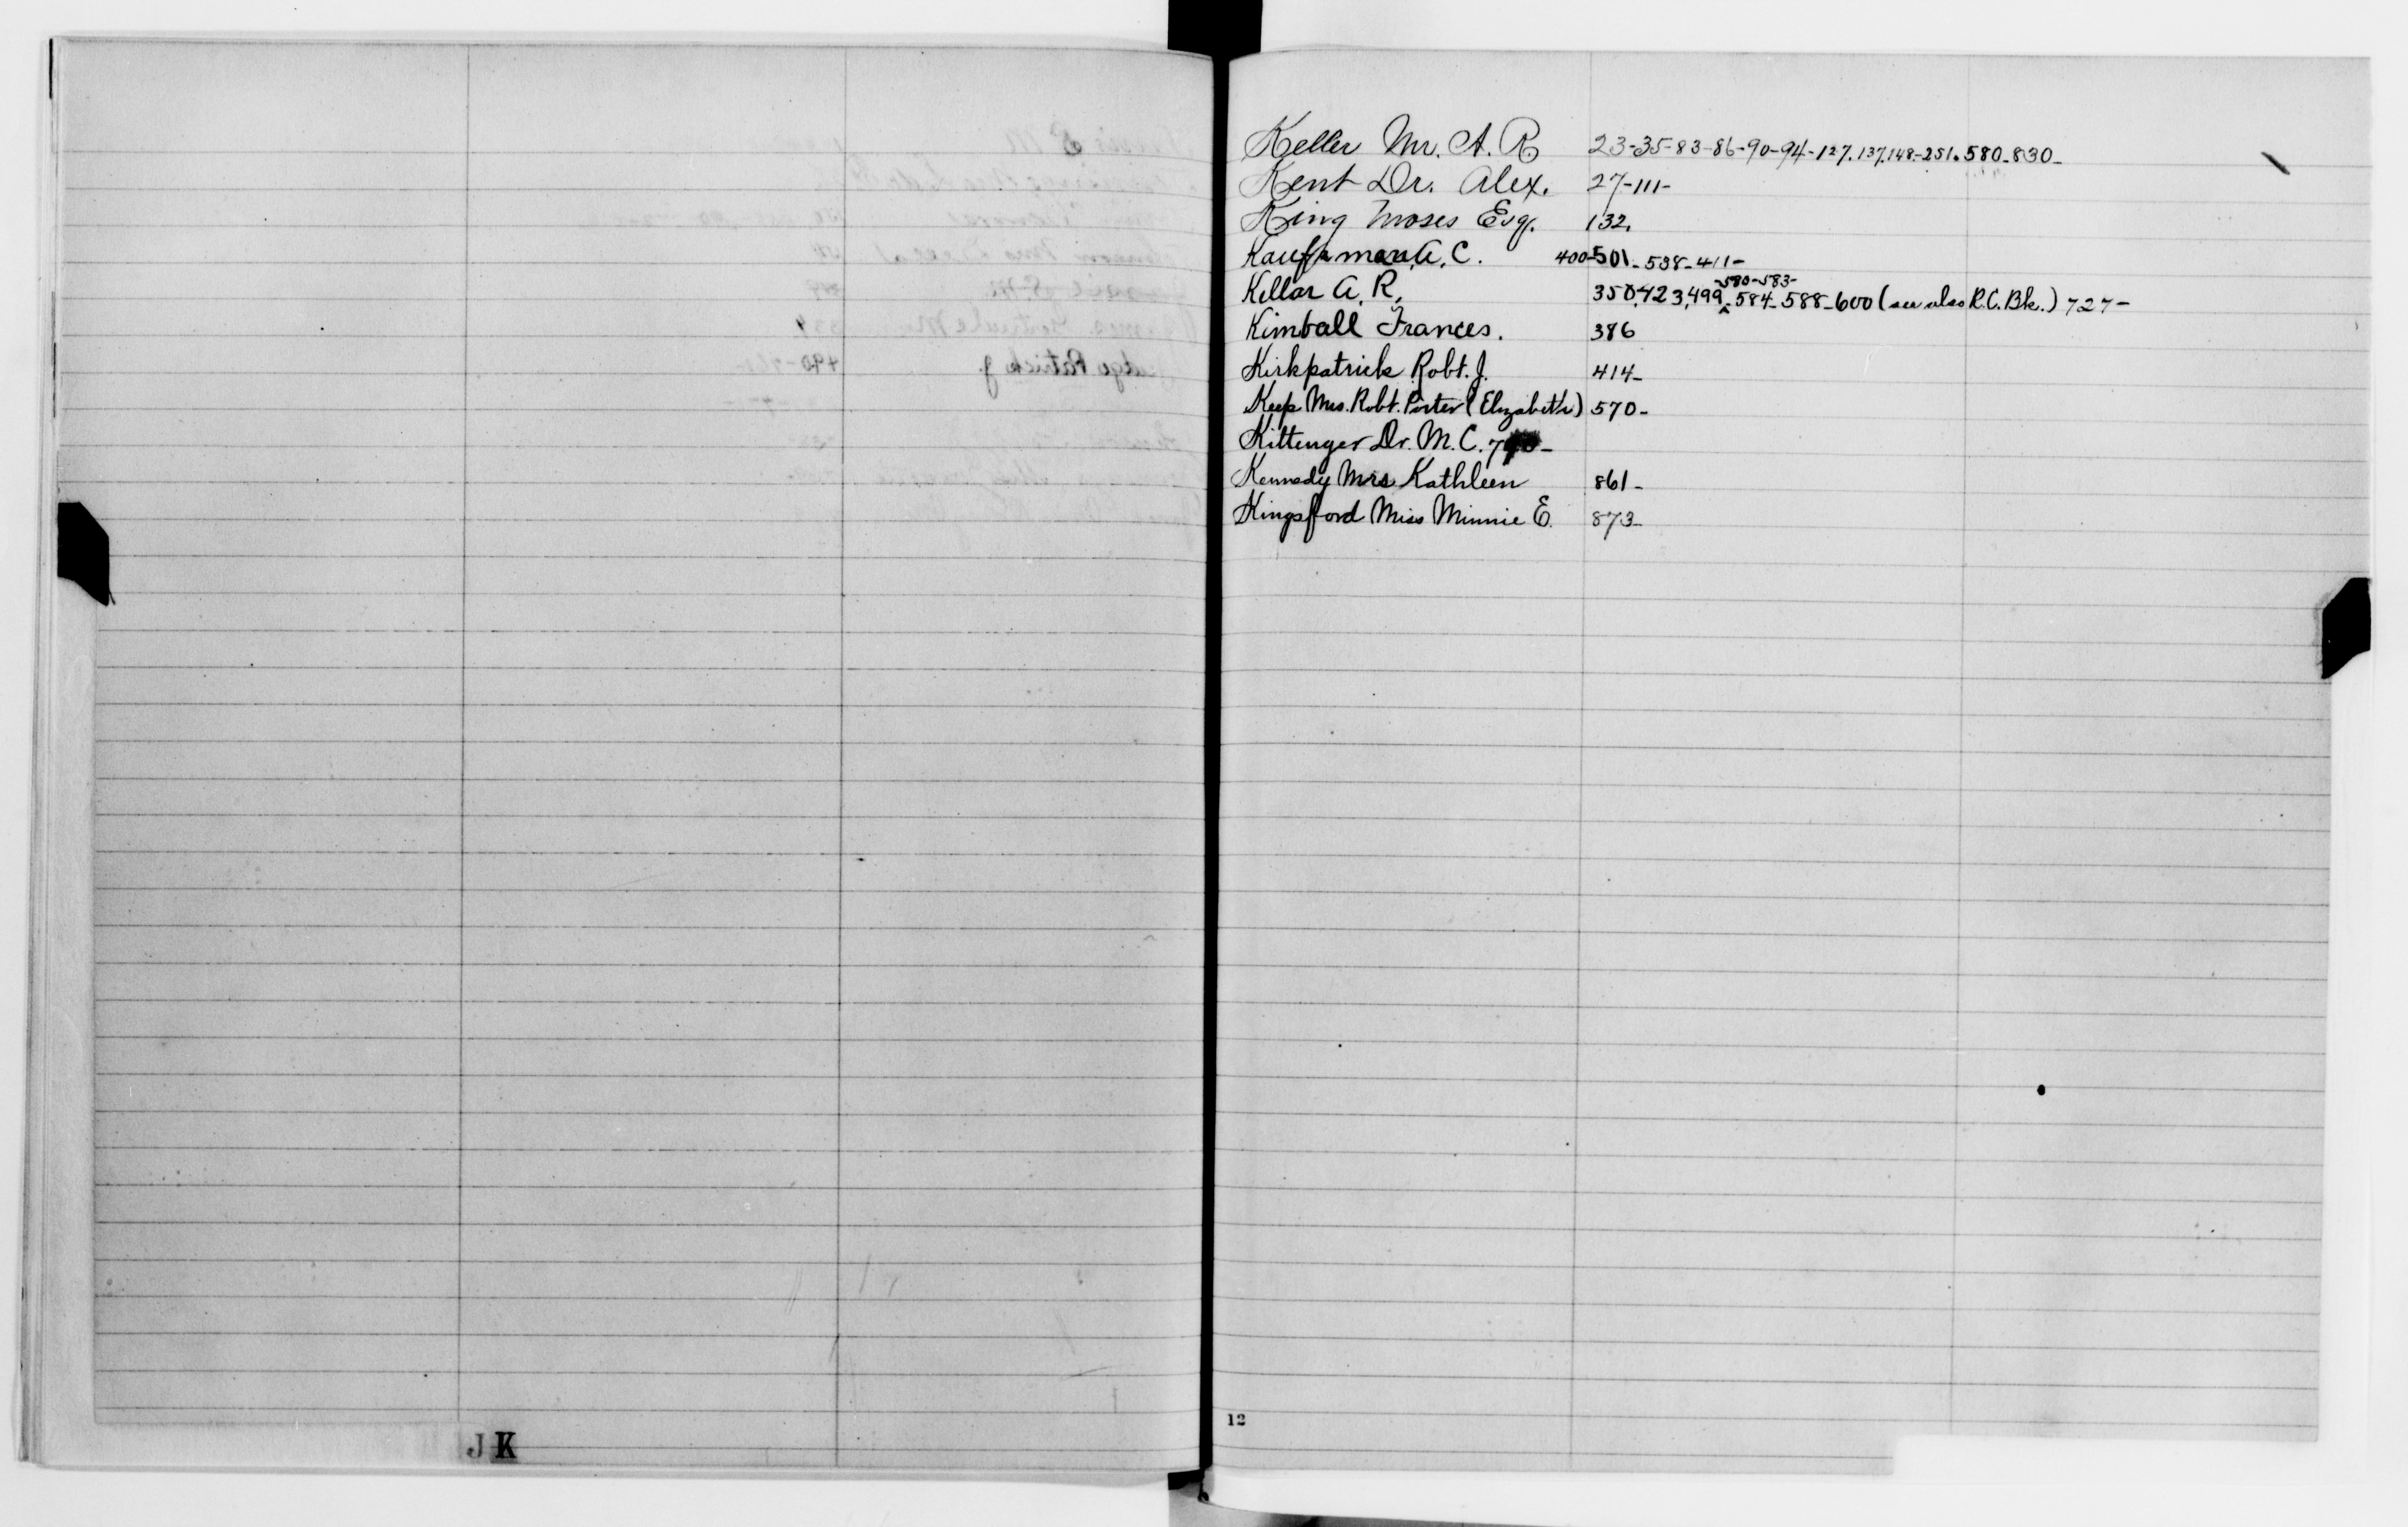 Keller Mr. A. R 23-35-83-86-90-94-127.137.148-251.580-830-
Kent Dr. Alex. 27-111-
King Moses Esq. 132.
Kaufman, A. C. 400-501-538-411-
Kellar A. R. 350,423,499 ^ -580-583- 584-588-600 (see also R.C.Bk.) 727-
Kimball Frances. 386
Kirkpatrick Robt. J. 414-
Keep Mrs. Robt. Porter (Elizabeth) 570-
Kittenger Dr. M. C.
Kennedy Mrs Kathleen 861-
Kingsford Miss Minnie E. 873-
12
J K